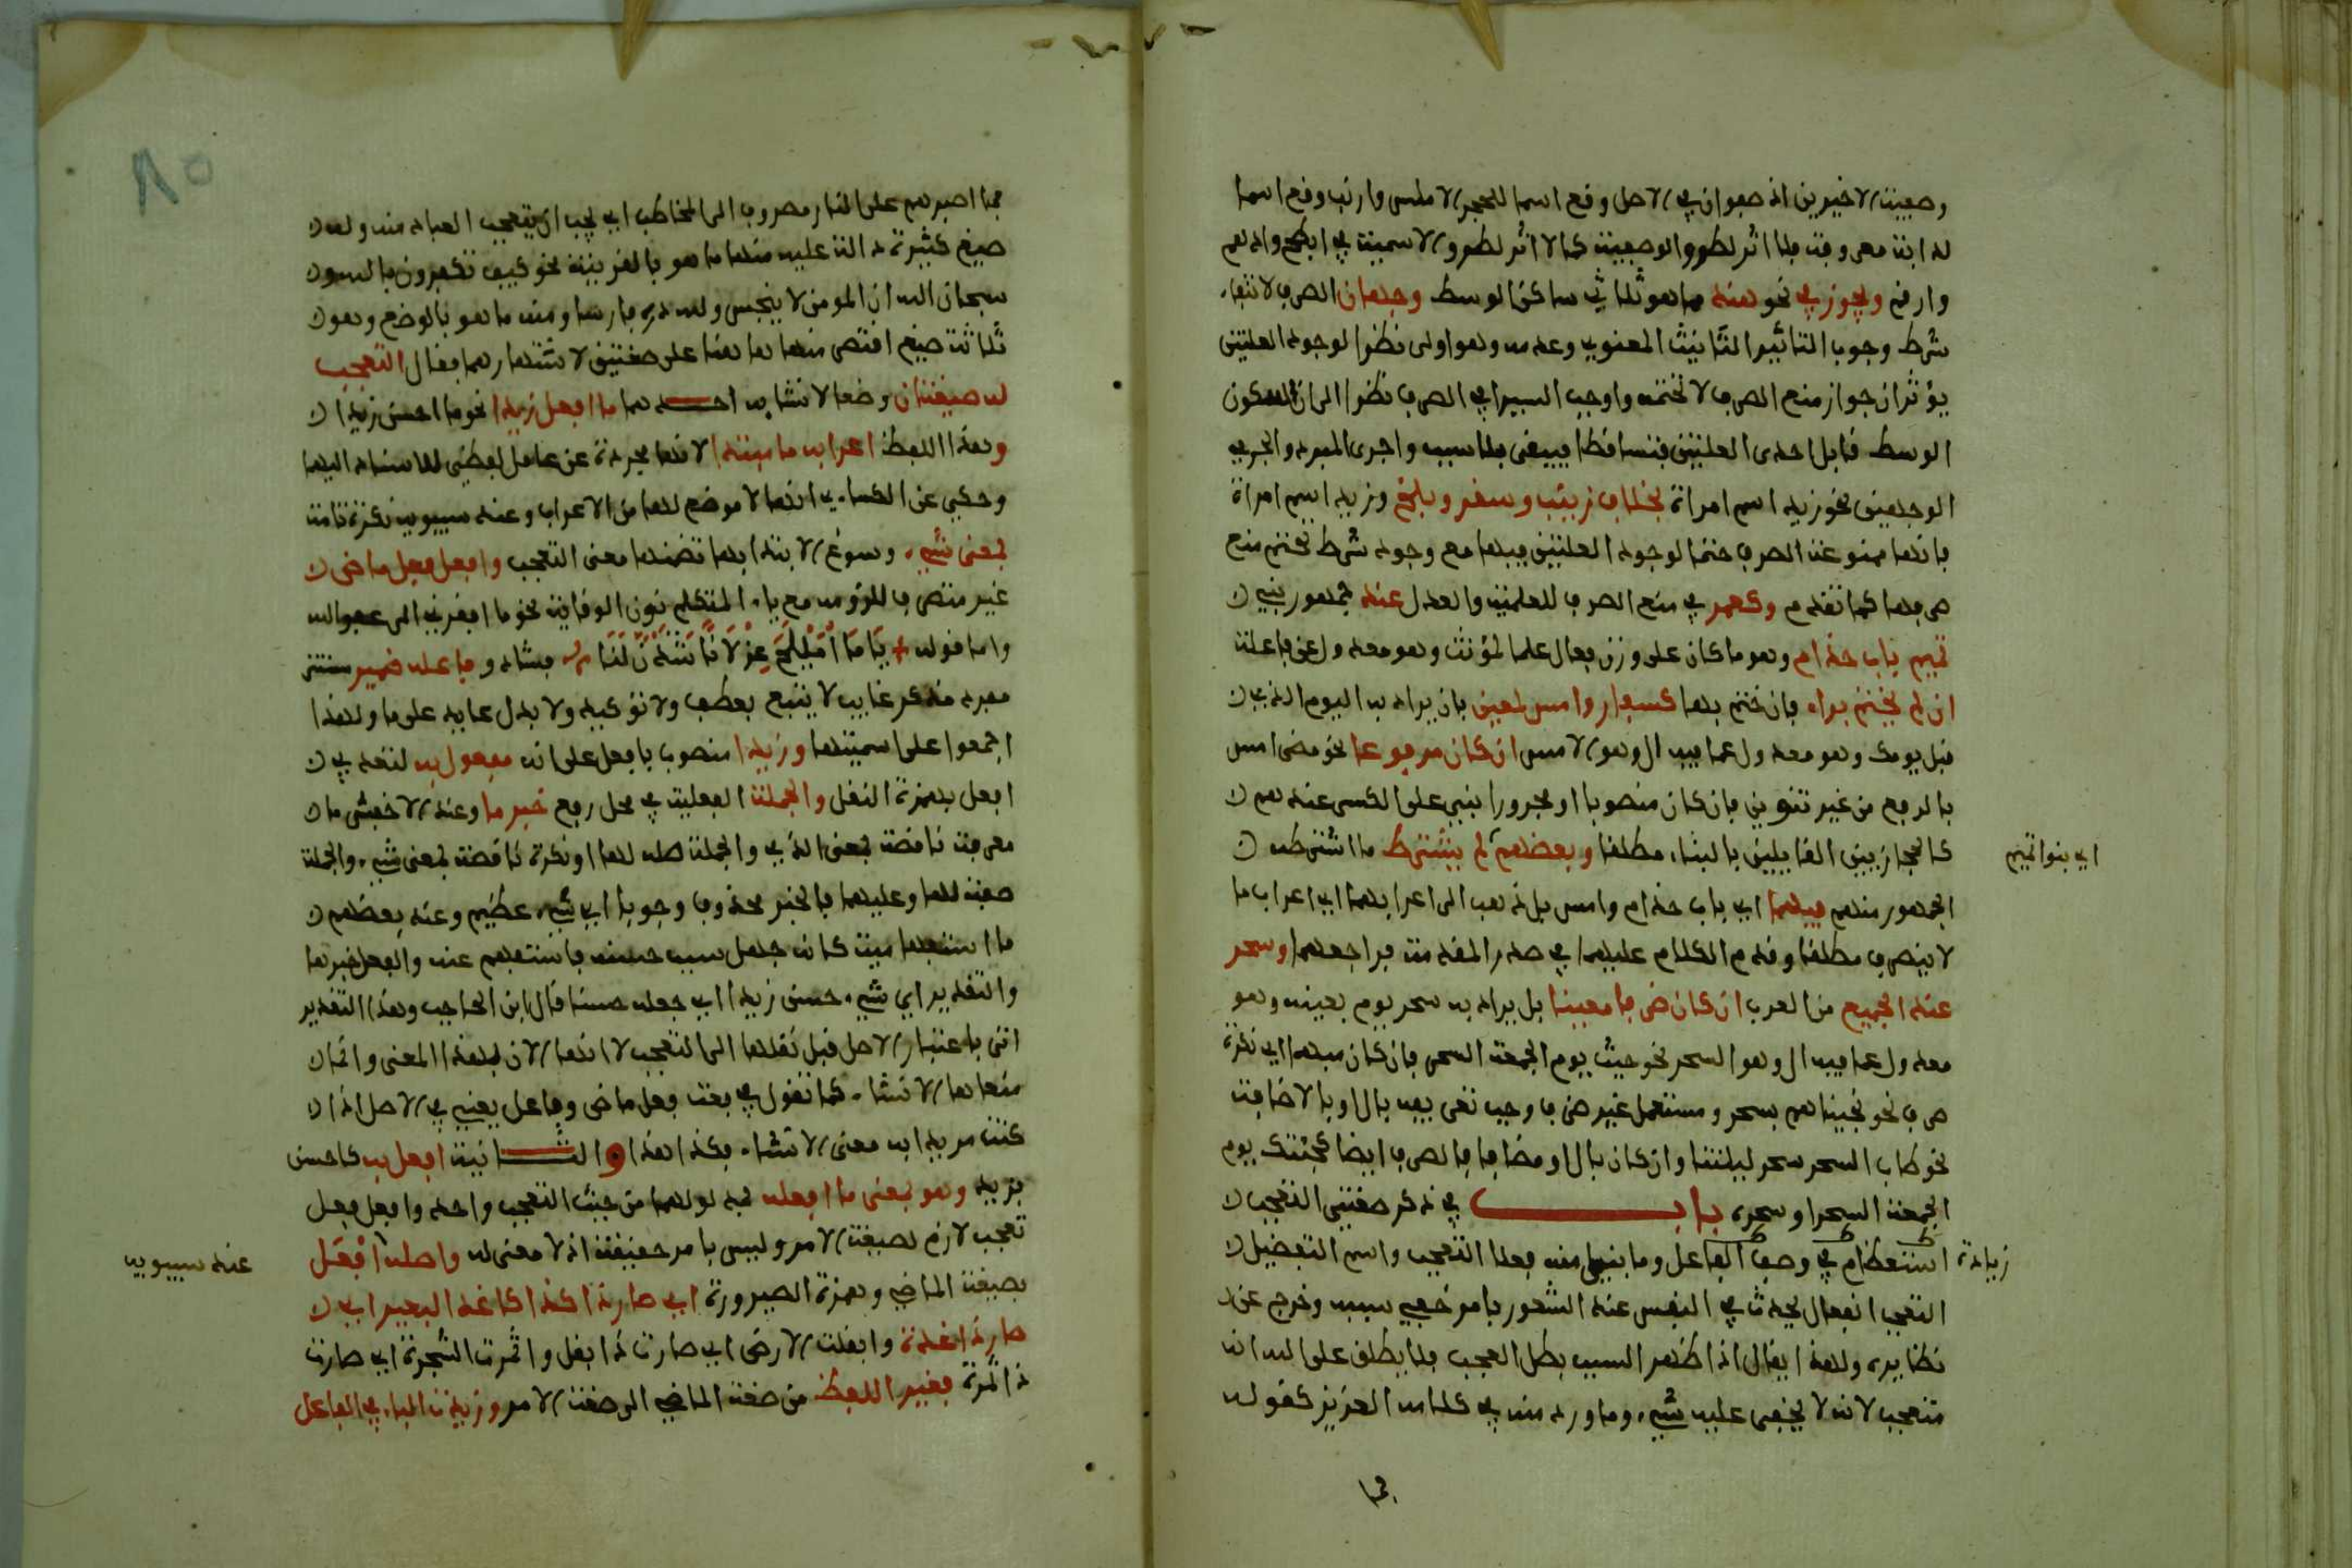 وصعبيته الاخيرين اذ صفوان في الاصل وقع اسما للحجر الاملس وارنب وقع اسما
لدابة معروفة فلا اثر لطرو الوصفية كما لا اثر لطرو الاسمية في ابطح وادهم
وارقم ويجوز في نحو هند مما هو ثلاثي ساكن الوسط وجهان الصرف لانتفاء
شرط وجوب التاثير التانيث المعنوي وعدمه وهو اولى نظرا لوجود العلتين
يؤثران جواز منع الصرف لا تحتمه واوجب السيرافي الصرف نظرا الى ان السكون
الوسط قابل احدى العلتين فتساقطا فيبقى بلا سبب واجرى المبرد والجرمي
الوجهين نحو زيد اسم امراة بخلاف زينب وسقر وبلخ وزيد اسم امراة
فانها ممنوعة الصرف حتما لوجود العلتين فيها مع وجود شرط تحتم منع
صرفها كما تقدم وكعمر في منع الصرف للعلمية والعدل عند جمهور بني
تميم باب حذام وهو ما كان على وزن فعال علما لمؤنث وهو معدول عن فاعلة
ان لم يختم براء فان ختم بها كسفار وامس لمعين بان يراد به اليوم الذي
قبل يومك وهو معدول عما فيه ال وهو الامس ان كان مرفوعا نحو مضى امس
بالرفع من غير تنوين فان كان منصوبا او مجرورا بني على الكسر عندهم
كالحجازيين القايلين بالبناء مطلقا وبعضهم لم يشترط ما اشترطه
اي بنو تميم
الجمهور منهم فيهما اي باب حذام وامس بل ذهب الى اعرابهما اي اعراب ما
لا ينصرف مطلقا وقدم الكلام عليهما في صدر المقدمة فراجعهما وسحر
عند الجميع من العرب ان كان ظرفا معينا بل يراد به سحر يوم بعينه وهو
معدول عما فيه ال وهو السحر نحو جيت يوم الجمعة السحر فان كان مبهما اي نكرة
صرف نحو نجيناهم بسحر ومستعمل غير ظرف وجب تعريفه بال او بالاضافة
نحو طاب السحر سحر ليلتنا وان كان بال او مضافا فالصرف ايضا كجئتك يوم
الجمعة السحر او سحره باب في ذكر صفتى التعجب
استعظام زيادة في وصف الفاعل وما بنيا منه فعلا التعجب واسم التفضيل
التعجب انفعال يحدث في النفس عند الشعور بامر خفي سببه وخرج عن
نظايره ولهذا يقال اذا ظهر السبب بطل العجب فلا يطلق على الله انه
متعجب لانه لا يخفى عليه شيء وما ورد منه في كلامه العزيز كقوله
فما
فما اصبرهم على النار مصروف الى المخاطب اي يجب ان يتعجب العباد منه وله
صيغ كثيرة دالة عليه منها ما هو بالقرينة نحو كيف تكفرون بالله
سبحان الله ان المومن لا ينجس ولله دره فارسا ومنه ما هو بالوضع وهو
ثلاثة صيغ اقتصر منها ها هنا على صغتين لاشتهارهما فقال التعجب
له صيغتان وضعا لانشايه احدهما ما افعل زيدا نحو ما احسن زيدا
وهذا اللفظ اعرابه ما مبتدا لانها مجردة عن عامل لفظي للاسناد اليها
وحكي عن الكساءي انها لا موضع لها من الاعراب وعند سيبويه نكرة تامة
بمعنى شيء وسوغ الابتدا بها تضمنها معنى التعجب وافعل فعل ماض
غير متصرف للزومه مع ياء المتكلم نون الوقاية نحو ما افقرني الى عفو الله
واما قوله يَامَا أُمَيْلِحَ غِزْلَانًا شَدَنَّ لَنَا فشاذ وفاعله ضمير مستتر
مفرد مذكر غايب لا يتبع بعطف ولا توكيد ولا بدل عايد على ما ولهذا
اجمعوا على اسميتها وزيدا منصوب بافعل على انه مفعول به لتعديه
افعل بهمزة النقل والجملة الفعلية في محل رفع خبر ما وعند الاخفش ما
معرفة ناقصة بمعنى الذي والجملة صلة لها او نكرة ناقصة بمعنى شيء والجملة
صفة لها وعليهما فالخبر محذوف وجوبا اي شيء عظيم وعند بعضهم
ما استفهامية كانه جهل سبب حسنه فاستفهم عنه والفعل خبرها
والتقدير اي شيء حسن زيدا اي جعله حسنا قال ابن الحاجب وهذا التقدير
انتى باعتبار الاصل قبل نقلها الى التعجب لا انها الان بهذا المعنى وانما
معناها الانشاء كما تقول في بعت فعل ماض وفاعل يعني في الاصل اذا
كنت مريدا به معنى الانشاء فكذا هذا والثانية افعل به كاحسن
بزيد وهو بمعنى ما افعله فمدلولهما من حيث التعجب واحد وافعل فعل
تعجب لازم لصيغة الامر وليس بامر حقيقة اذ لا معنى له واصله افعَل
عند سيبويه
بصيغة الماضي وهمزة الصيرورة اي صار ذا كذا كاغد البعير اي
صار ذا غدة وابقلت الارض اي صارت ذا بقل واثمرت الشجرة اي صارت
ذا ثمرة فغير اللفظ من صغة الماضي الى صغة الامر وزيدت الباء في الفاعل
٨٥